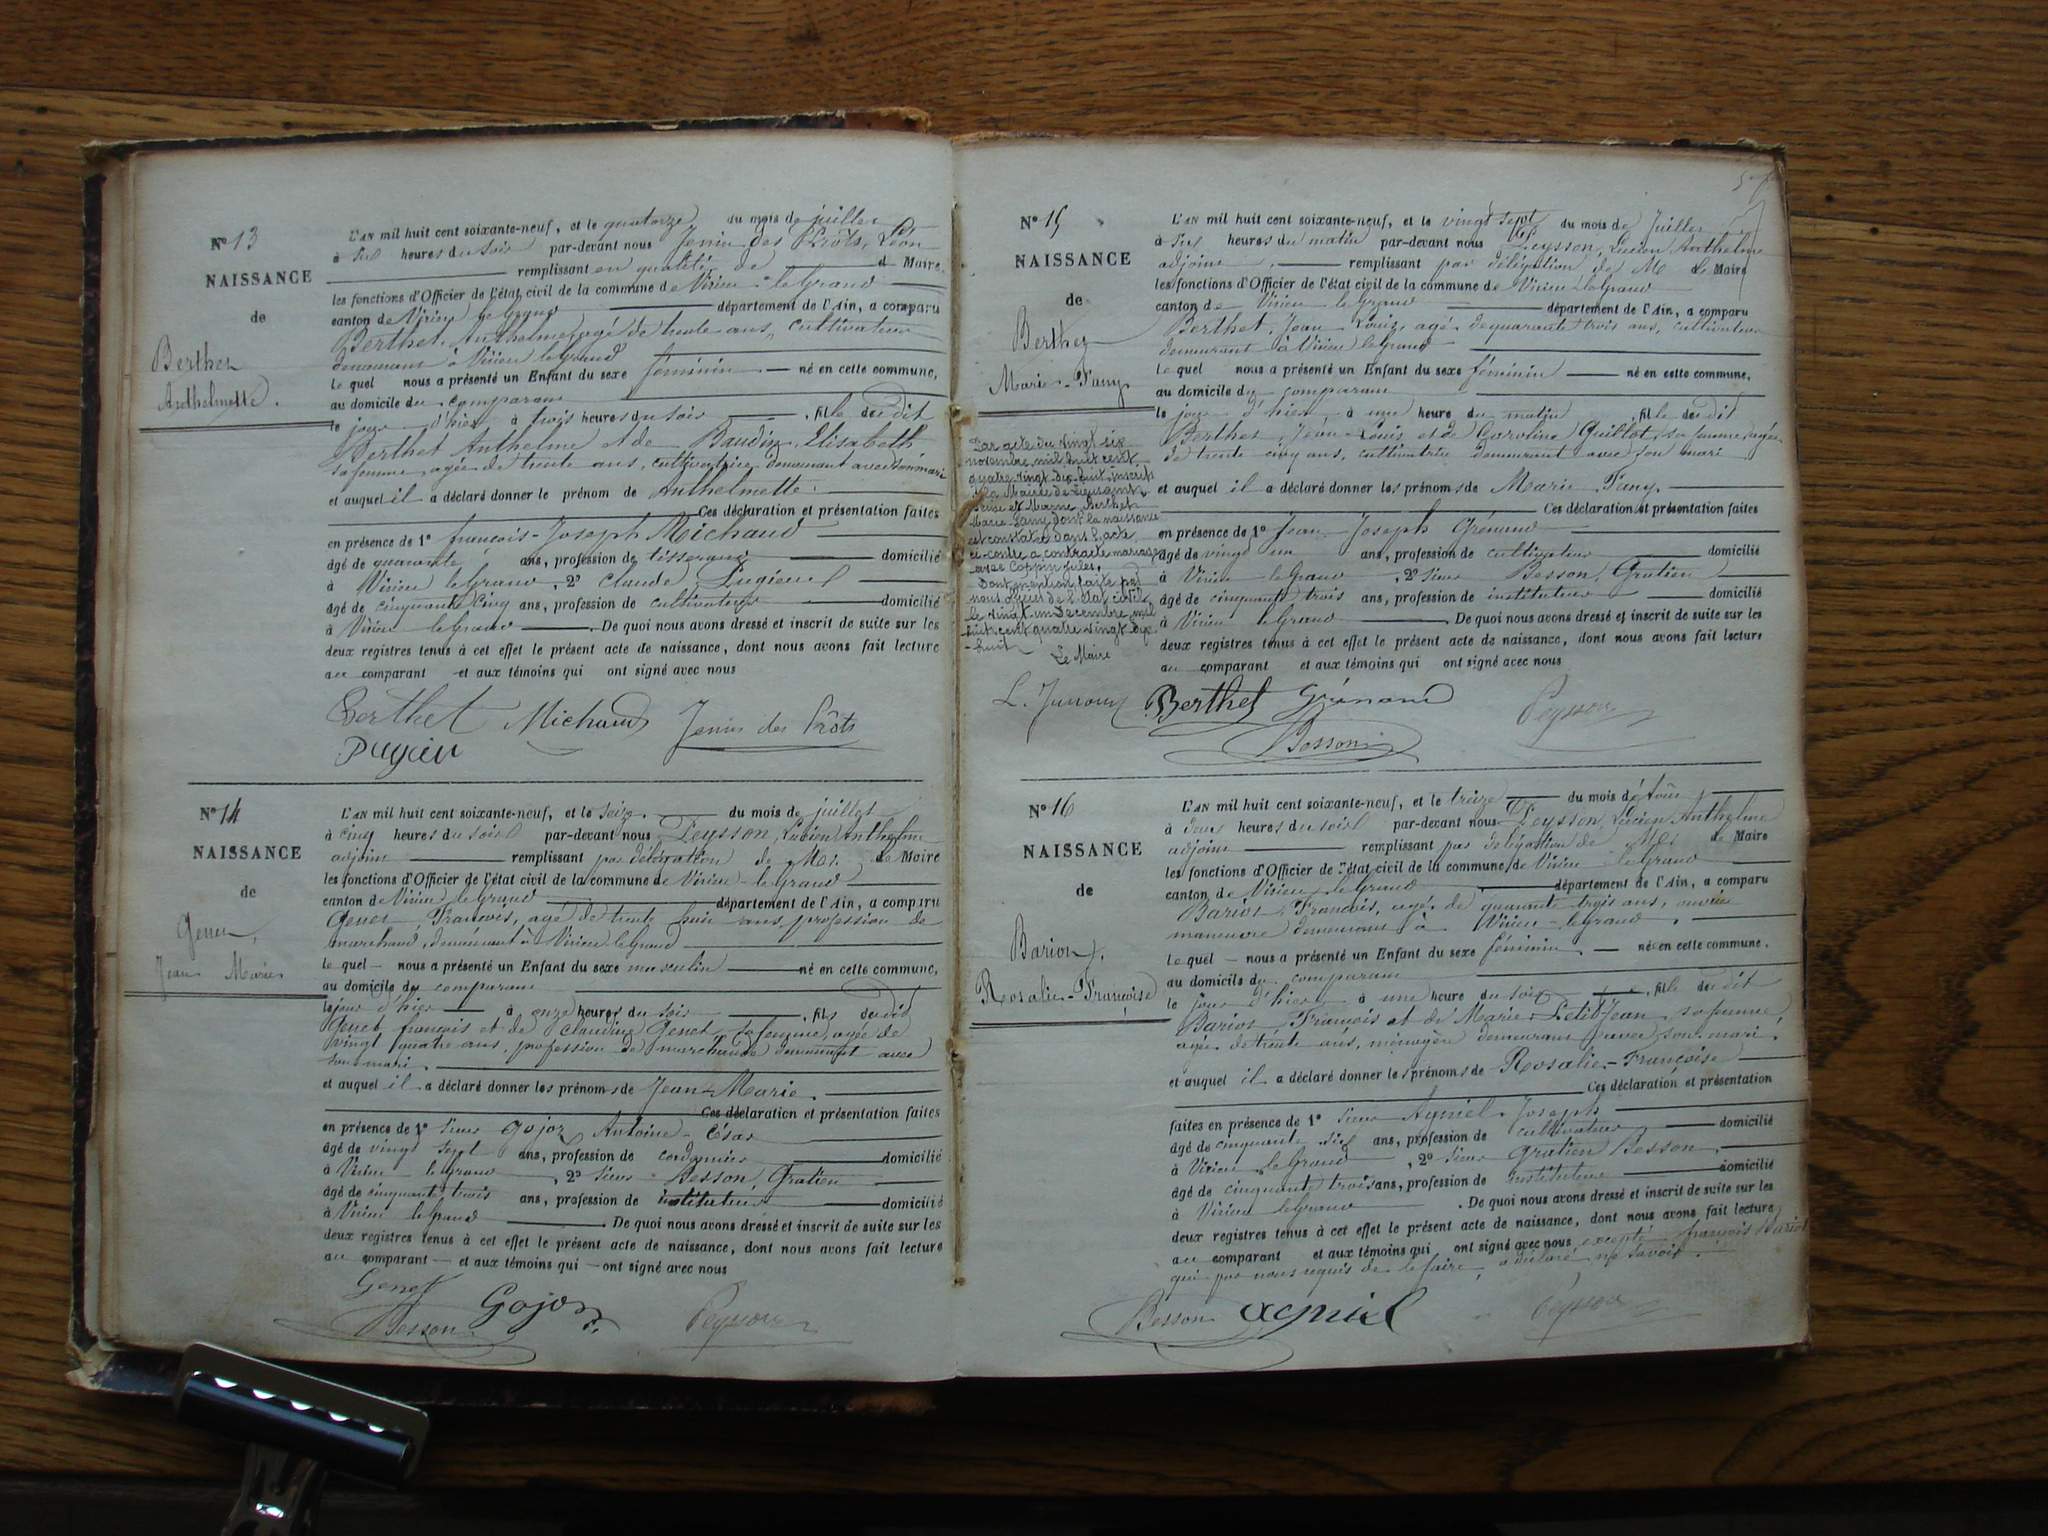 N° 13
NAISSANCE
de
Berthet
Anthelmette.
L'AN mil huit cent soixante-neuf, et le quatorze du mois de juillet
à six heures du soir par-devant nous Jenin des Prôts, Léon
remplissant en qualité de Maire
les fonctions d'Officier de l'état civil de la commune de Virieu-le-Grand
canton de Virieu le Grand département de l'Ain, a comparu
Berthet Anthelme, agé de trente ans, cultivateur
demeurant à Virieu le Grand
le quel nous a présenté un Enfant du sexe féminin né en cette commune,
au domicile du comparant
le jour d'hier à trois heures du soir, fille du dit
Berthet Anthelme et de Baudin Elisabeth
sa femme, agée de trente ans, cultivatrice demeurant avec son mari
et auquel il a déclaré donner le prénom de Anthelmette.
Ces déclaration et présentation faites
en présence de 1° françois-Joseph Michaud
âgé de quarante ans, profession de tisserand domicilié
à Virieu le Grand, 2° Claude
âgé de cinquante cinq ans, profession de cultivateur domicilié
à Virieu le Grand. De quoi nous avons dressé et inscrit de suite sur les
deux registres tenus à cet effet le présent acte de naissance, dont nous avons fait lecture
au comparant et aux témoins qui ont signé avec nous
Berthet Michaud Jenin des Prôts
N° 14
NAISSANCE
de
Genet,
Jean Marie
L'AN mil huit cent soixante-neuf, et le seize du mois de juillet
à cinq heures du soir par-devant nous Peysson, Lucien Anthelme
adjoint remplissant par délégation de Mr. le Maire
les fonctions d'Officier de l'état civil de la commune de Virieu-le-Grand
canton de Virieu le Grand département de l'Ain, a comparu
Genet, François, agé de trente huit ans, profession de
marchand, demeurant à Virieu le Grand
le quel nous a présenté un Enfant du sexe masculin né en cette commune,
au domicile du comparant
le jour d'hier à onze heures du soir, fils du dit
Genet françois et de Claudine Genet, sa femme, agée de
vingt quatre ans, profession de marchande demeurant avec
son mari.
et auquel il a déclaré donner les prénoms de Jean-Marie.
Ces déclaration et présentation faites
en présence de 1° sieur Gojoz Antoine César
âgé de vingt sept ans, profession de cordonnier domicilié
à Virieu le Grand, 2° sieur Besson, Gratien
âgé de cinquante trois ans, profession de instituteur domicilié
à Virieu le Grand. De quoi nous avons dressé et inscrit de suite sur les
deux registres tenus à cet effet le présent acte de naissance, dont nous avons fait lecture
au comparant et aux témoins qui ont signé avec nous
Genet
Besson Gojoz Peysson
N° 15
NAISSANCE
de
Berthet
Marie-Fany
Par acte du vingt six
novembre mil huit cent
quatre vingt dix huit inscrit
à la Mairie de Lieusaint
Seine et Marne Berthet
Marie Fany dont la naissance
est constatée dans l'acte
ci-contre a contracté mariage
avec Coppin Jules.
Dont mention faite par
nous officier de l'état civil
le vingt un Décembre mil
huit cent quatre vingt dix
huit
Le Maire
L'AN mil huit cent soixante-neuf, et le vingt sept du mois de Juillet
à six heures du matin par-devant nous Peysson, Lucien Anthelme
adjoint, remplissant par délégation de M le Maire
les fonctions d'Officier de l'état civil de la commune de Virieu-le-Grand
canton de Virieu le Grand département de l'Ain, a comparu
Berthet, Jean Louis, agé de quarante trois ans, cultivateur
demeurant à Virieu le Grand
le quel nous a présenté un Enfant du sexe féminin né en cette commune,
au domicile du comparant
le jour d'hier, à une heure du matin, fille du dit
Berthet, Jean-Louis et de Caroline Guillot, sa femme, agée
de trente cinq ans, cultivatrice demeurant avec son mari
et auquel il a déclaré donner les prénoms de Marie Fany.
Ces déclaration et présentation faites
en présence de 1° Jean Joseph Grénand
âgé de vingt un ans, profession de cultivateur domicilié
à Virieu le Grand, 2° sieur Besson, Gratien
âgé de cinquante trois ans, profession de instituteur domicilié
à Virieu le Grand. De quoi nous avons dressé et inscrit de suite sur les
deux registres tenus à cet effet le présent acte de naissance, dont nous avons fait lecture
au comparant et aux témoins qui ont signé avec nous
Berthet Grénand Peysson
Besson
N° 16
NAISSANCE
de
Barioz.
Rosalie-Françoise
L'AN mil huit cent soixante-neuf, et le treize du mois de Août
à deux heures du soir par-devant nous Peysson, Lucien Anthelme
adjoint remplissant par délégation de Mr le Maire
les fonctions d'Officier de l'état civil de la commune de Virieu-le-Grand
canton de Virieu le Grand département de l'Ain, a comparu
Barioz, François, agé de quarante trois ans, ouvrier
maneuvre demeurant à Virieu-le-Grand.
le quel nous a présenté un Enfant du sexe féminin né en cette commune.
au domicile du comparant
le jour d'hier à une heure du soir, fille du dit
Barioz, François et de Marie Petit-Jean sa femme,
agée de trente ans, ménagère demeurant avec son mari.
et auquel il a déclaré donner les prénoms de Rosalie-Françoise
Ces déclaration et présentation
faites en présence de 1° sieur Agniel, Joseph
âgé de cinquante six ans, profession de cultivateur domicilié
à Virieu le Grand, 2° sieur Gratien Besson
âgé de cinquante trois ans, profession de instituteur domicilié
à Virieu le Grand. De quoi nous avons dressé et inscrit de suite sur les
deux registres tenus à cet effet le présent acte de naissance, dont nous avons fait lecture
au comparant et aux témoins qui ont signé avec nous excepté françois Barioz
qui par nous requis de le faire, a déclaré ne savoir.
Besson agniel Peysson